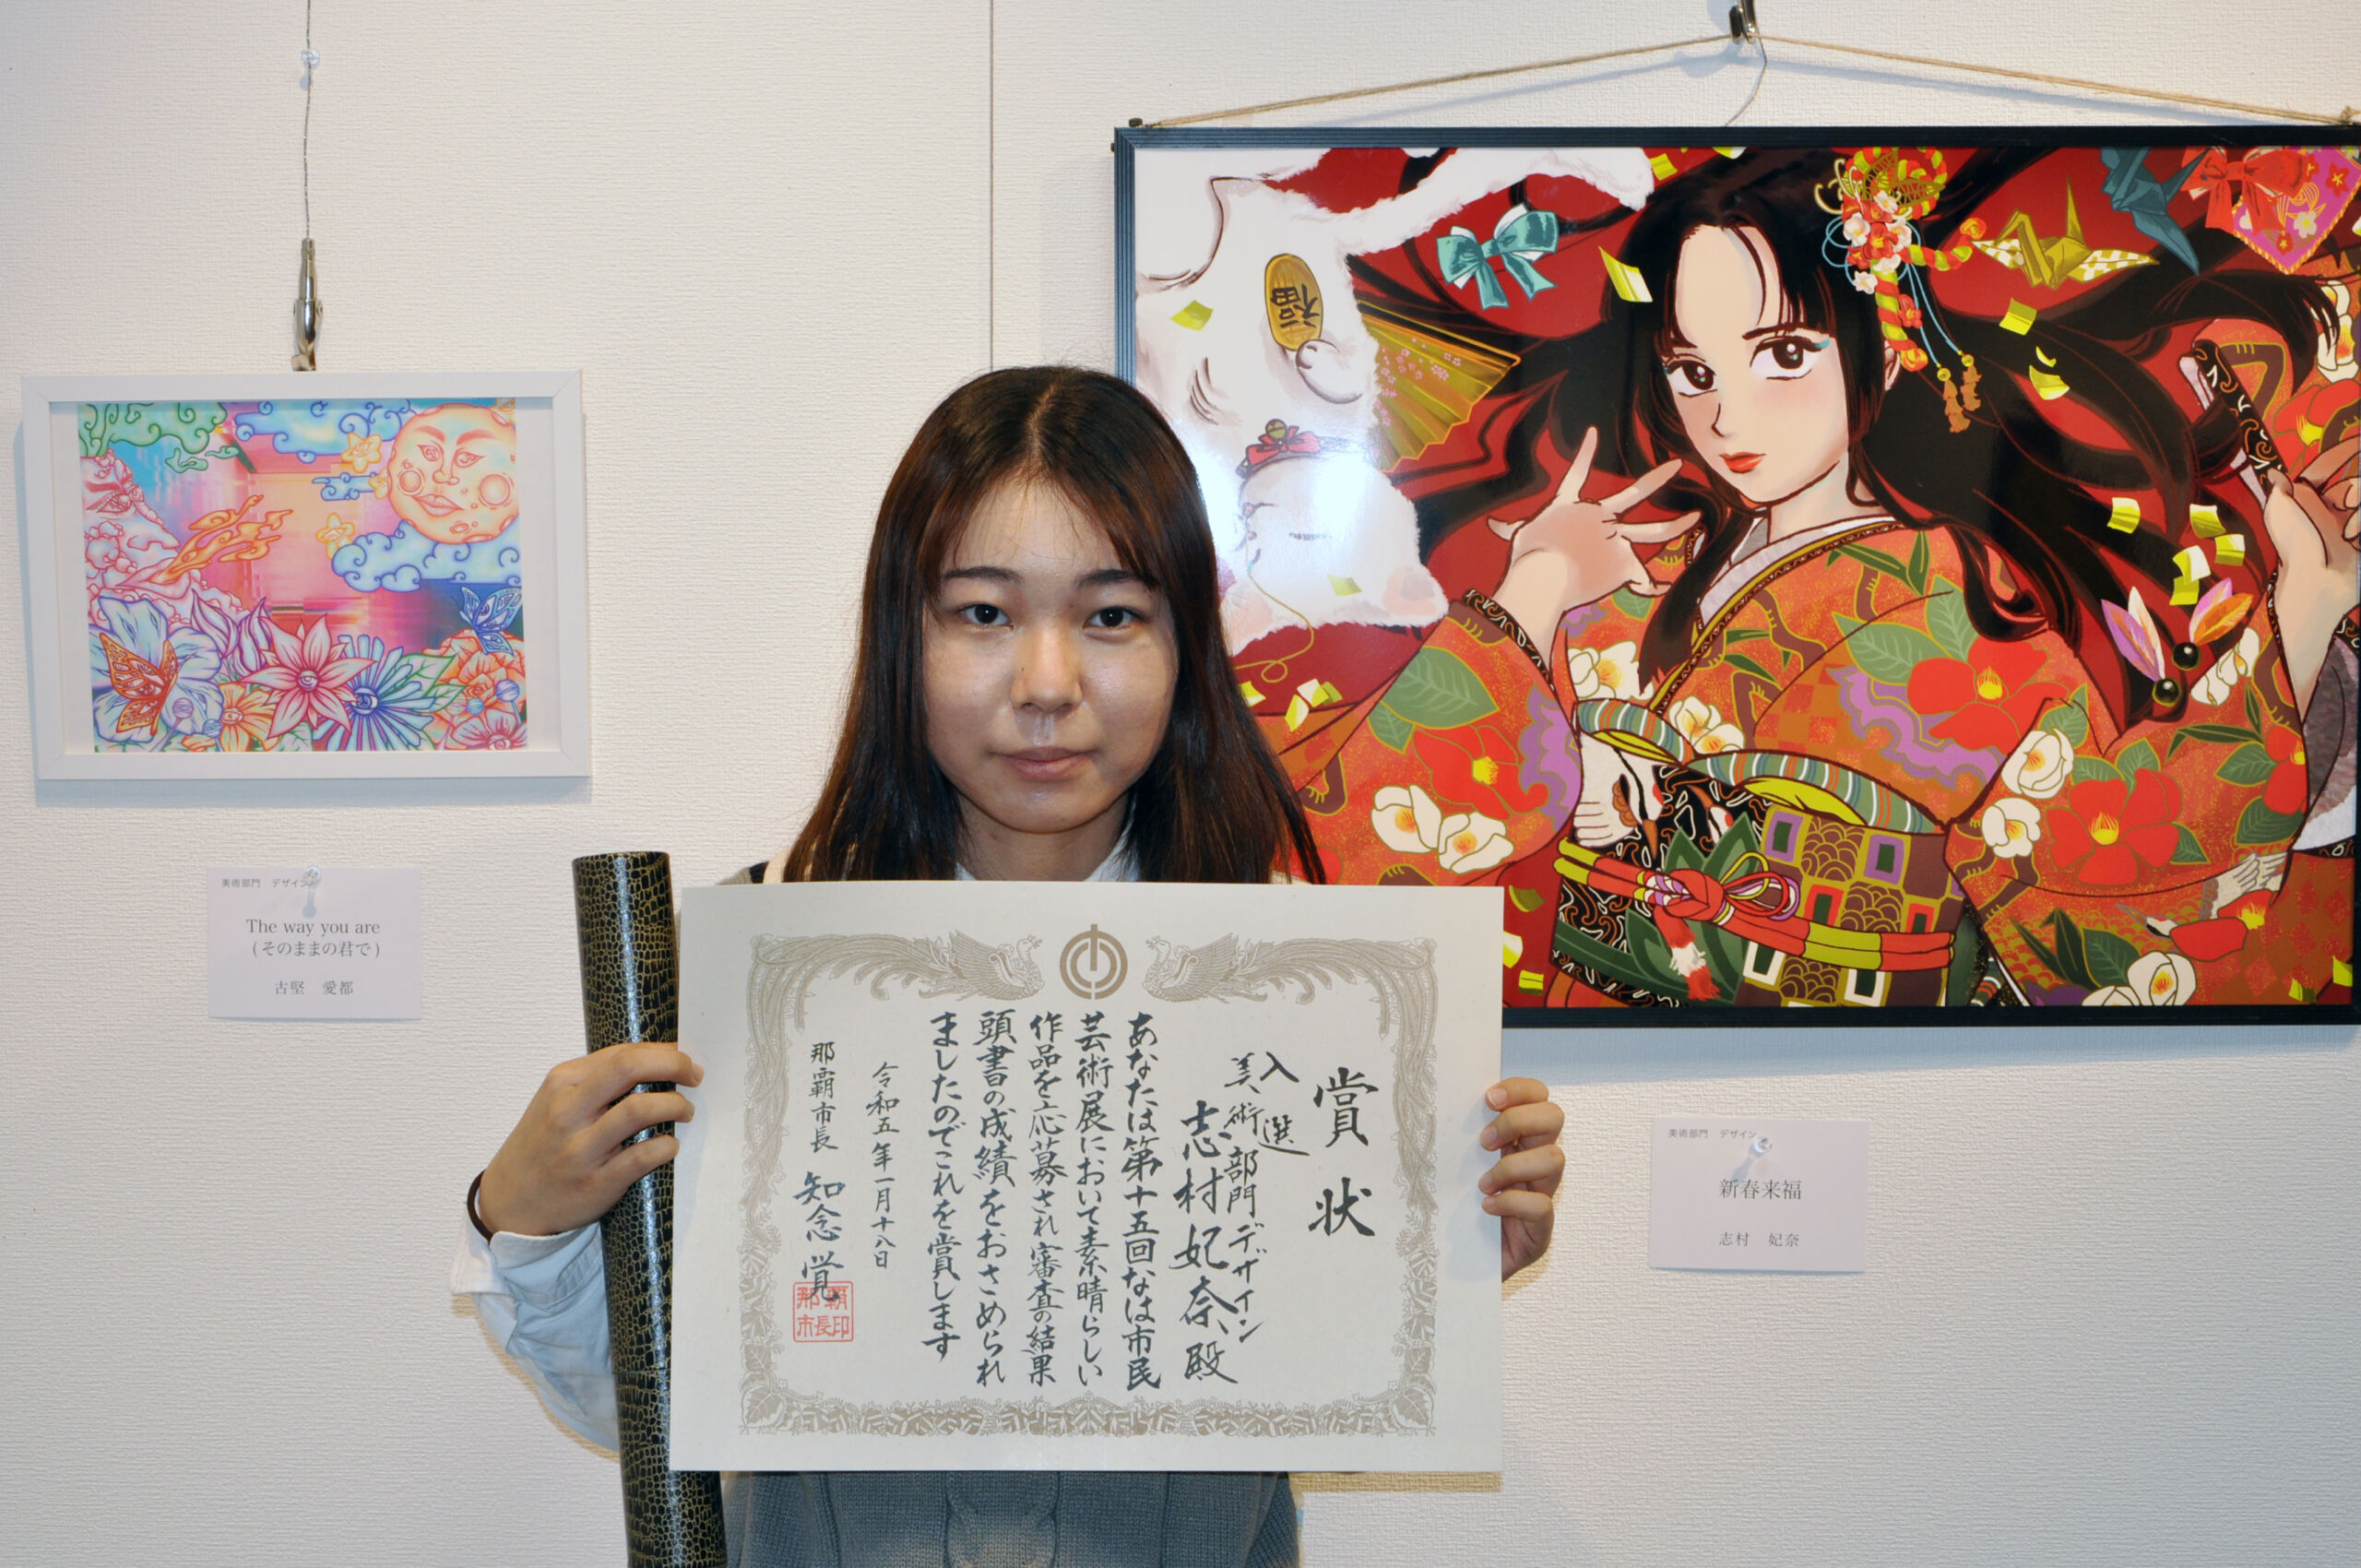 福
美術部門　デザイン
The way you are
(そのままの君で)
古堅　愛都
賞状
入選
美術部門デザイン
志村妃奈殿
あなたは第十五回なは市民
芸術展において素晴らしい
作品を応募され審査の結果
頭書の成績をおさめられ
ましたのでこれを賞します
令和五年一月十八日
那覇市長　知念覚
那覇
市長印
美術部門　デザイン
新春来福
志村　妃奈